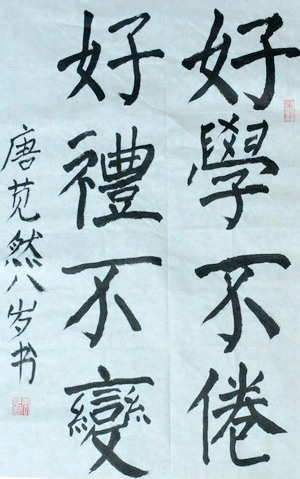 好學不倦
好禮不變
唐苋然八岁书